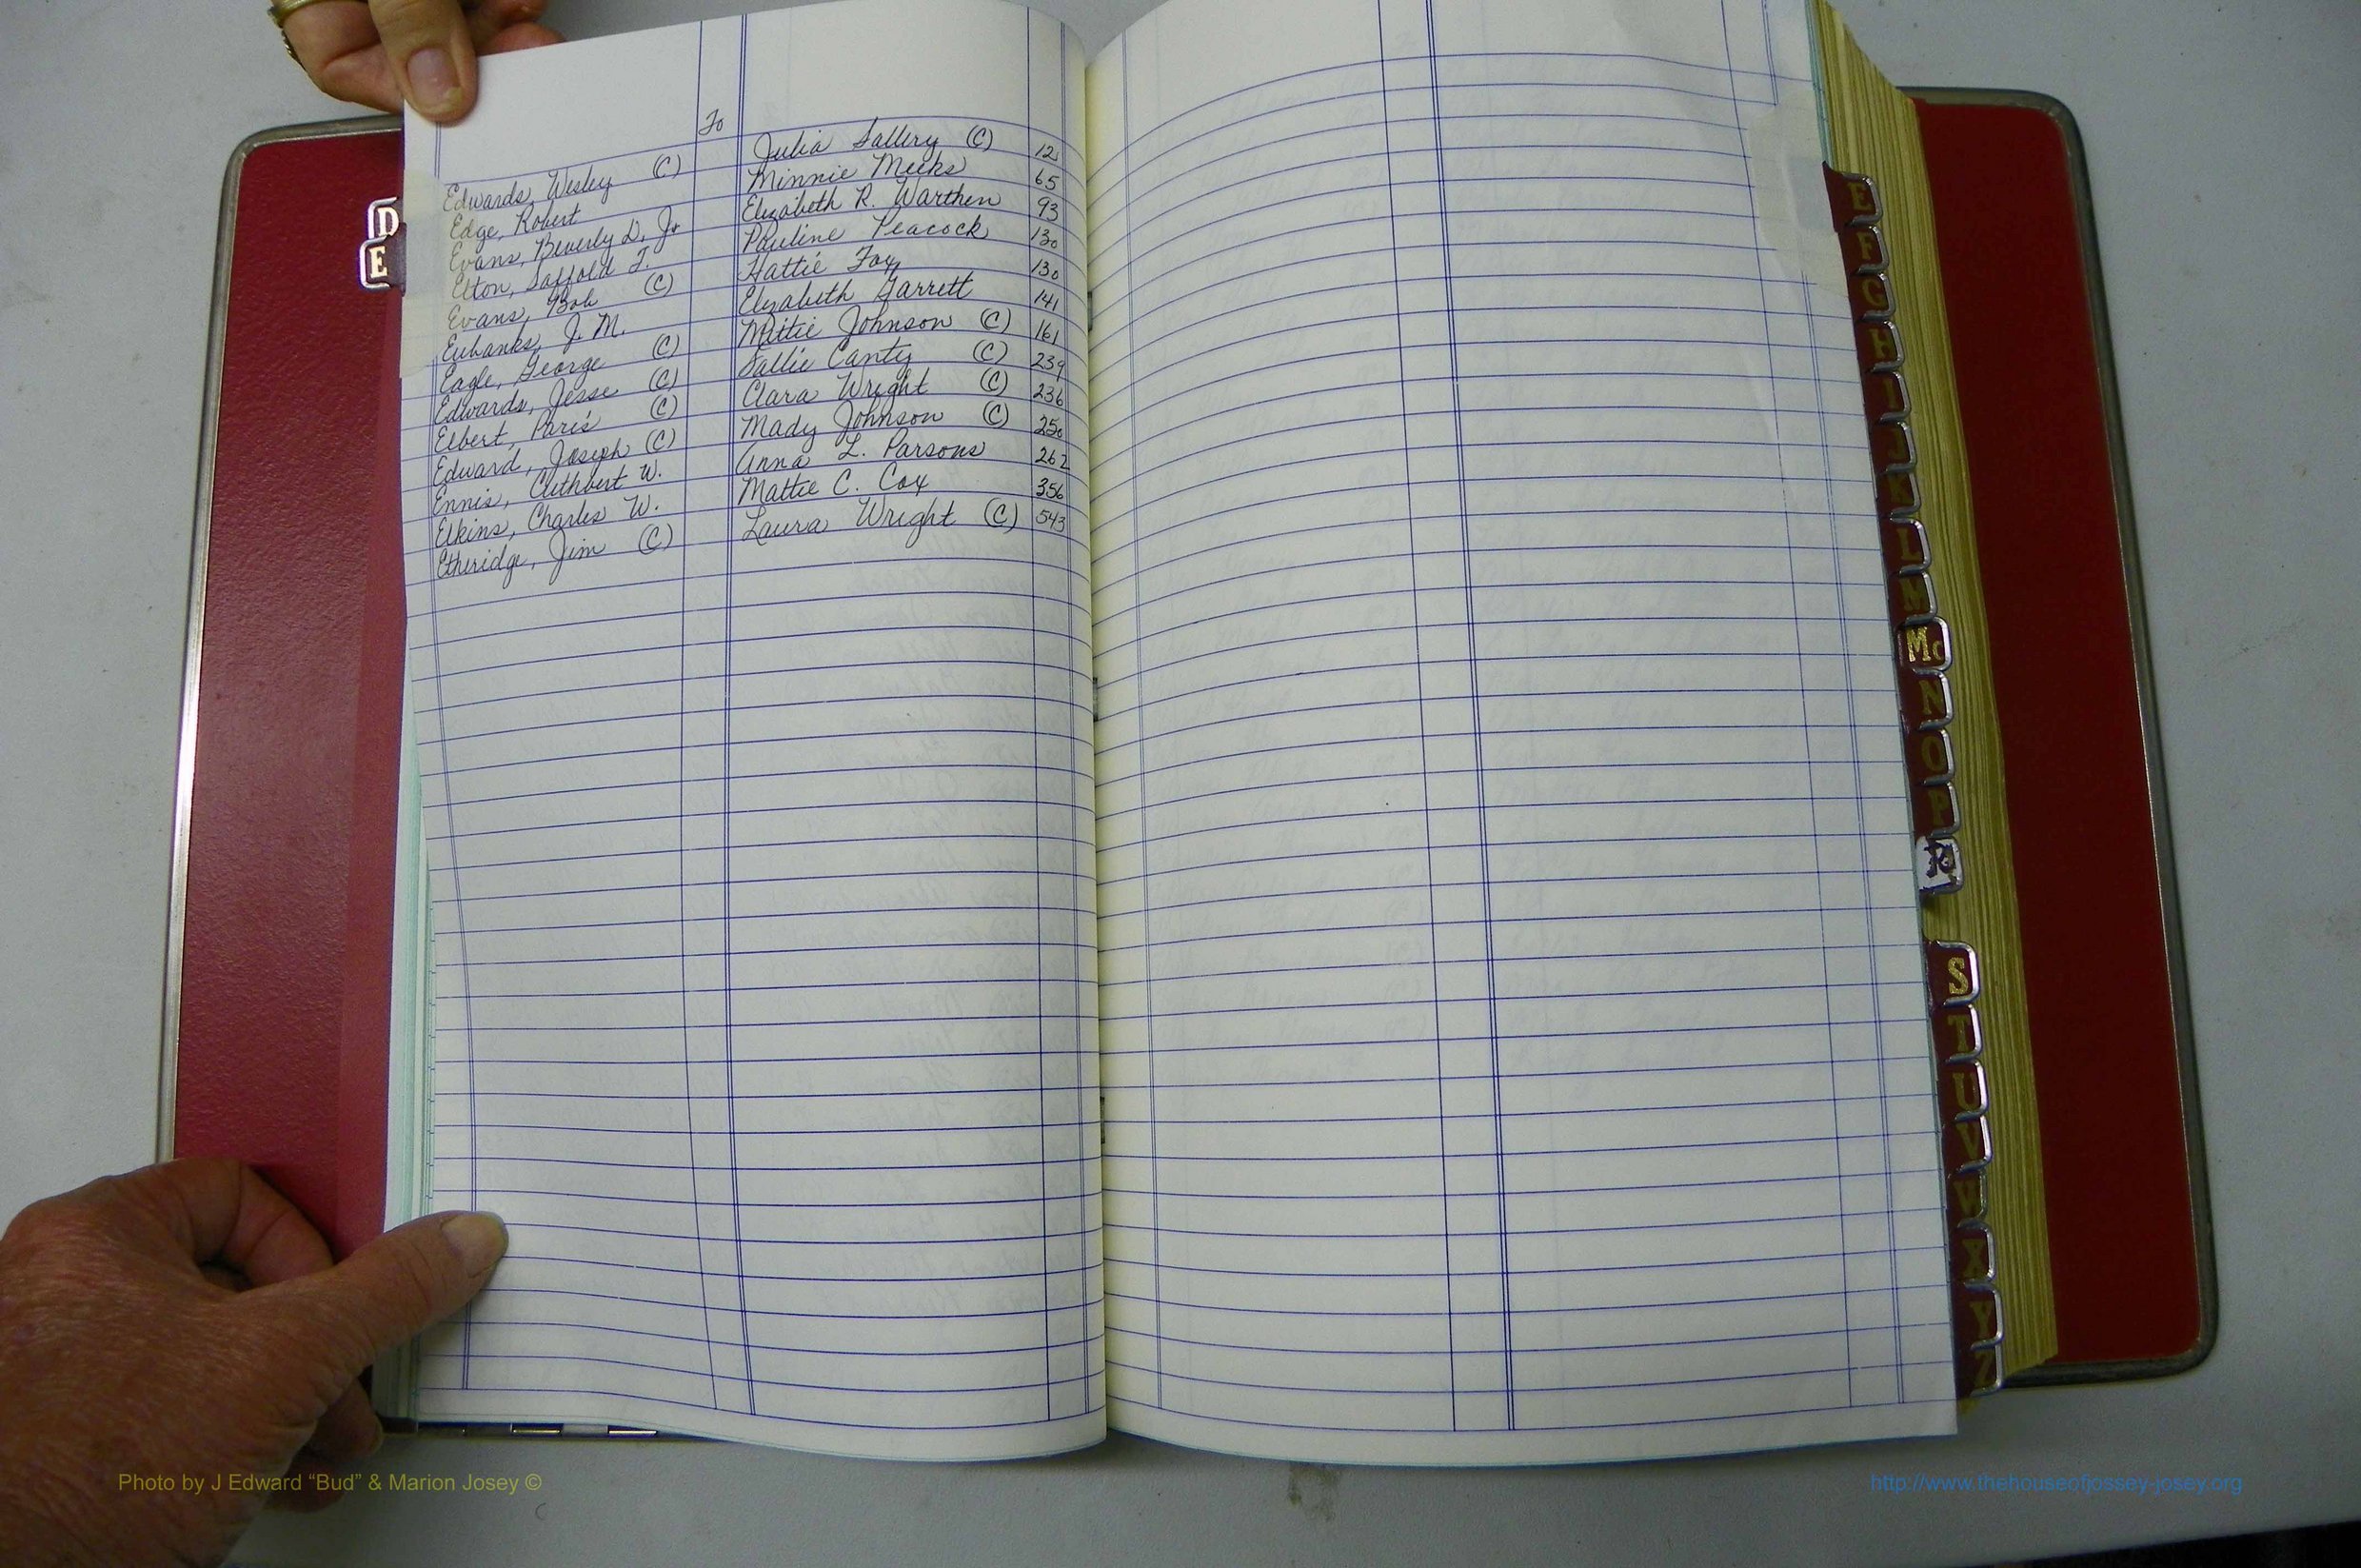 To
Edwards, Wesley (C) Julia Sallery (C) 12
Edge, Robert Minnie Meeks 65
Evans, Beverly D, Jr Elizabeth R. Warthen 93
Elton, Saffold T. Pauline Peacock 130
Evans, Bob (C) Hattie Foy 130
Eubanks, J. M. Elizabeth Garrett 141
Eagle, George (C) Mittie Johnson (C) 161
Edwards, Jesse (C) Sallie Canty (C) 239
Elbert, Paris (C) Clara Wright (C) 236
Edward, Joseph (C) Mady Johnson (C) 250
Ennis, Cuthbert W. Anna L. Parsons 262
Elkins, Charles W. Mattie C. Cox 356
Etheridge, Jim (C) Laura Wright (C) 543
D
E
E
F
G
H
I
J
K
L
M
Mc
N
O
P
S
T
U
V
W
X
Y
Z
Photo by J Edward “Bud” & Marion Josey ©
http://www.thehouseofjossey-josey.org